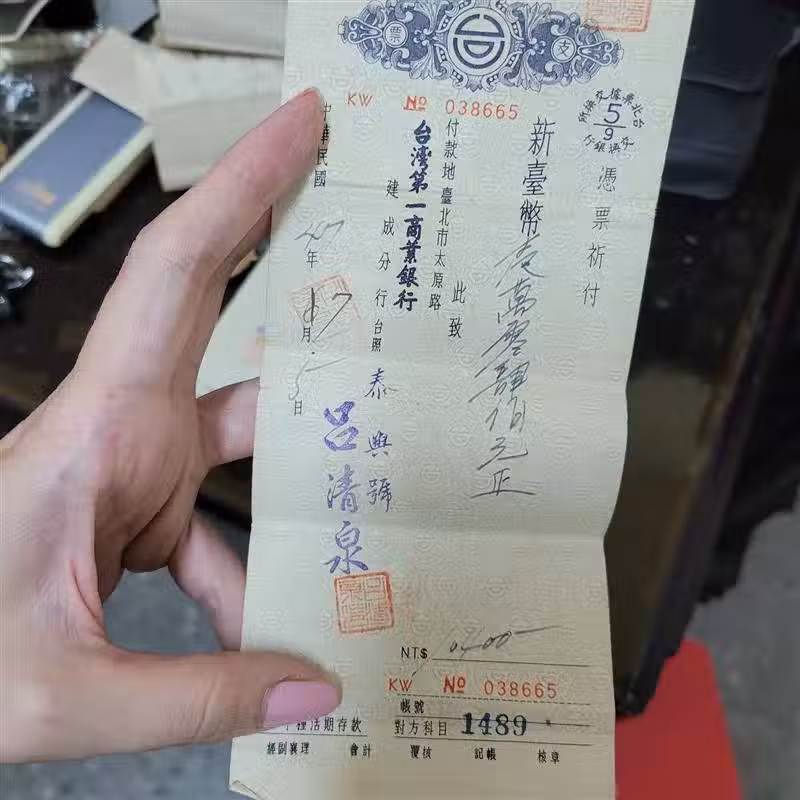 票
支
KW № 038665
憑票祈付
新臺幣壹萬零肆佰元正
此致
付款地臺北市太原路
台灣第一商業銀行
建成分行台照
泰興號
呂清泉
中華民國 47年 月 日
NT$ 10400-
KW № 038665
帳號 1489
種活期存款
對方科目
經副襄理 會計 覆核 記帳 核章